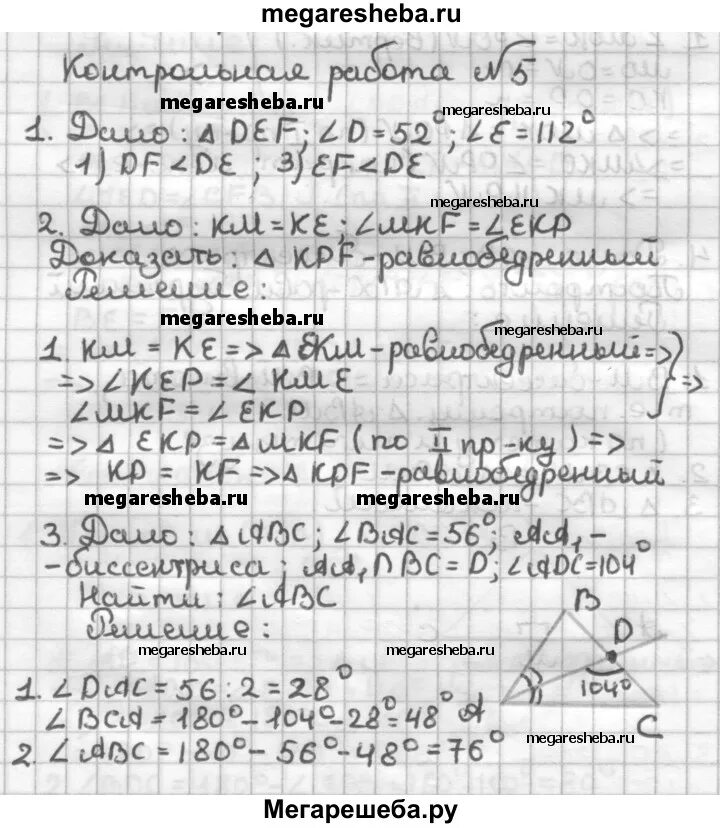 megaresheba.ru
Контрольная работа №5
megaresheba.ru megaresheba.ru
1. Дано: △ DEF; ∠D = 52°; ∠E = 112°
1) DF < DE ; 3) EF < DE
megaresheba.ru
2. Дано: KM = KE; ∠MKF = ∠EKP
Доказать: △ KPF - равнобедренный
Решение:
megaresheba.ru megaresheba.ru
1. KM = KE => △ EKM - равнобедренный =>
=> ∠KEP = ∠KME
∠MKF = ∠EKP
=>
=> △ EKP = △ MKF (по II пр-ку) =>
=> KP = KF => △ KPF - равнобедренный
megaresheba.ru megaresheba.ru
3. Дано: △ ABC; ∠BAC = 56°; AA₁ -
- биссектриса; AA₁ ∩ BC = D; ∠ADC = 104°
Найти: ∠ABC
Решение:
B
D
104°
A
C
megaresheba.ru megaresheba.ru
1. ∠DAC = 56 : 2 = 28°
∠BCA = 180° - 104° - 28° = 48°
2. ∠ABC = 180° - 56° - 48° = 76°
megaresheba.ru
Мегарешеба.ру